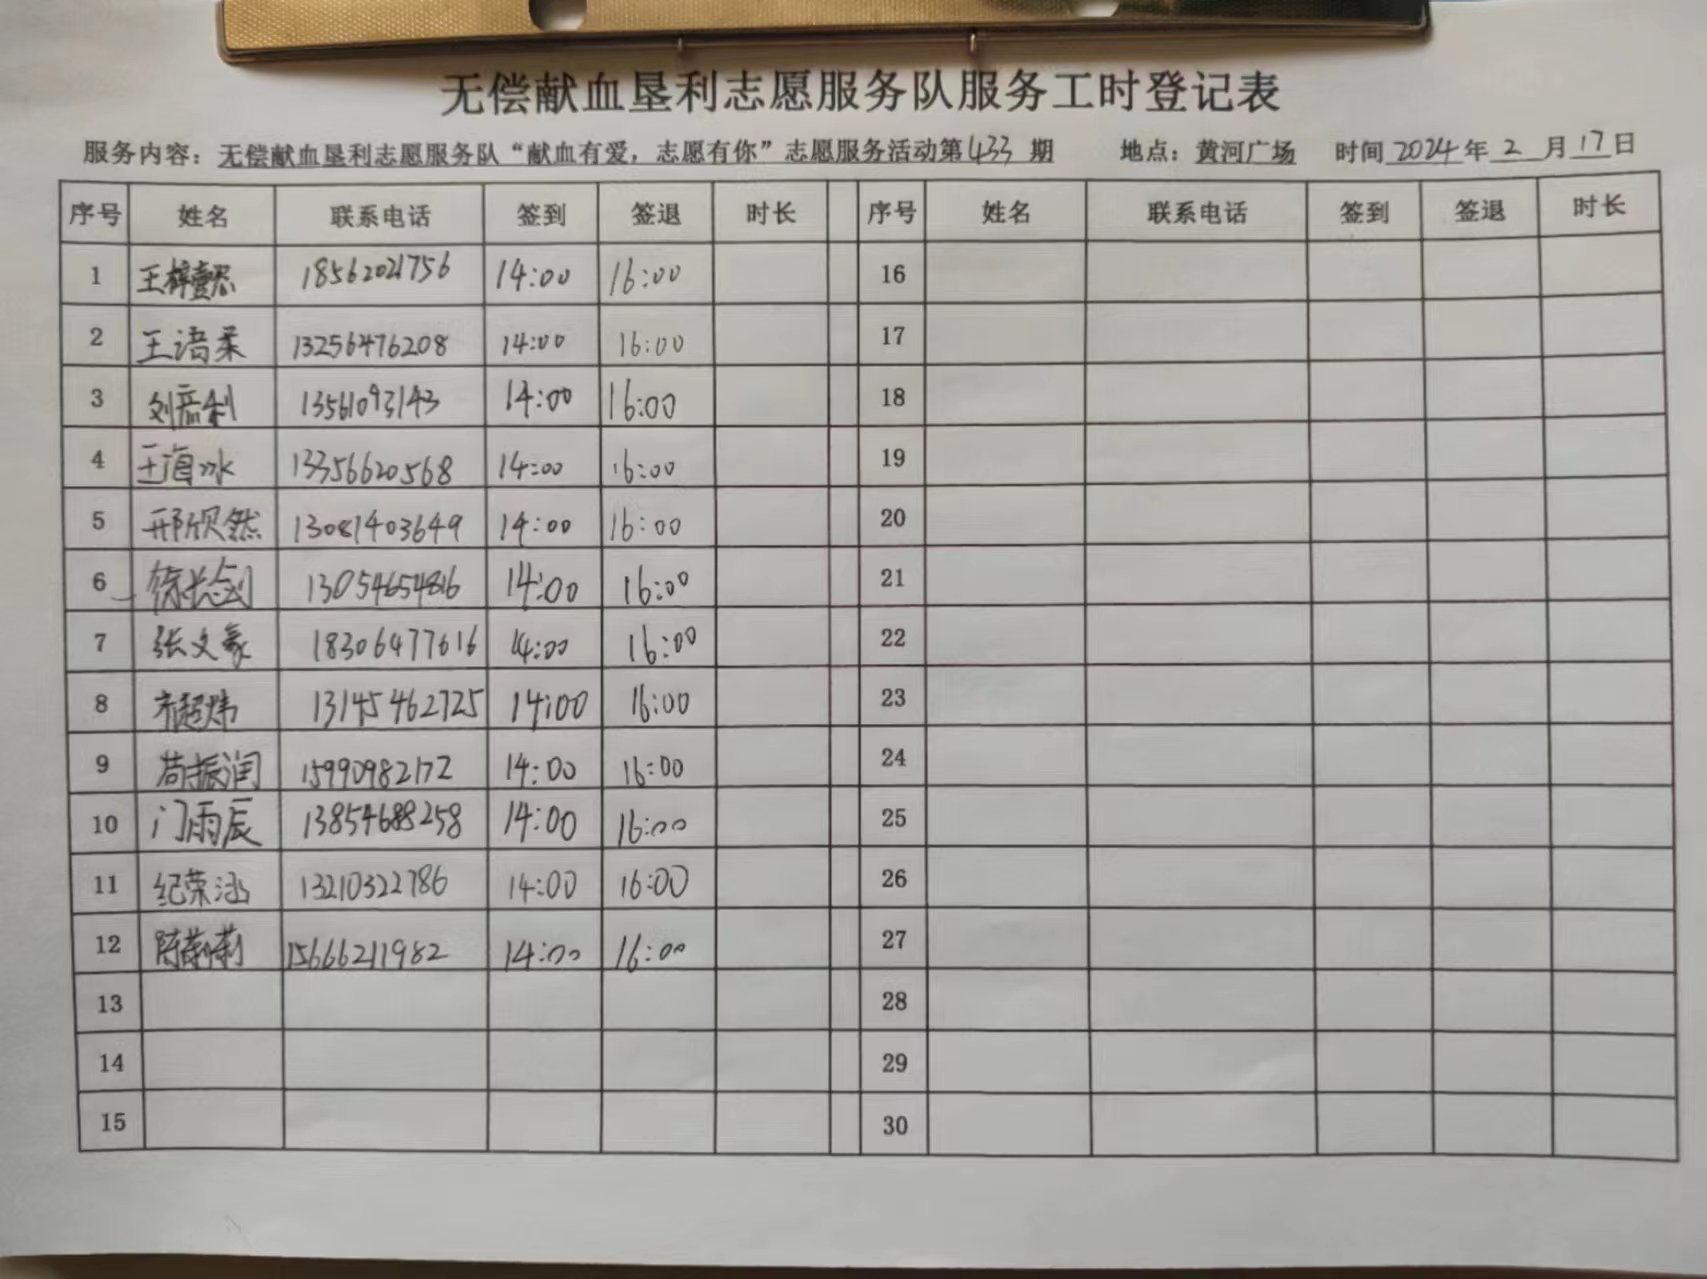 无偿献血垦利志愿服务队服务工时登记表
服务内容：无偿献血垦利志愿服务队“献血有爱，志愿有你”志愿服务活动第433期 地点：黄河广场 时间2024年2月17日
序号 姓名 联系电话 签到 签退 时长 序号 姓名 联系电话 签到 签退 时长
1 王梓懿 18562021756 14:00 16:00 16
2 王语柔 13256476208 14:00 16:00 17
3 刘彦利 13561093143 14:00 16:00 18
4 王海冰 13356620568 14:00 16:00 19
5 邢欣然 13081403649 14:00 16:00 20
6 徐长剑 13054654816 14:00 16:00 21
7 张文豪 18306477616 14:00 16:00 22
8 超炜 13145462725 14:00 16:00 23
9 苟振润 15990982172 14:00 16:00 24
10 门雨辰 13854688258 14:00 16:00 25
11 纪荣涵 13210322786 14:00 16:00 26
12 陈莉莉 15666211982 14:00 16:00 27
13 28
14 29
15 30